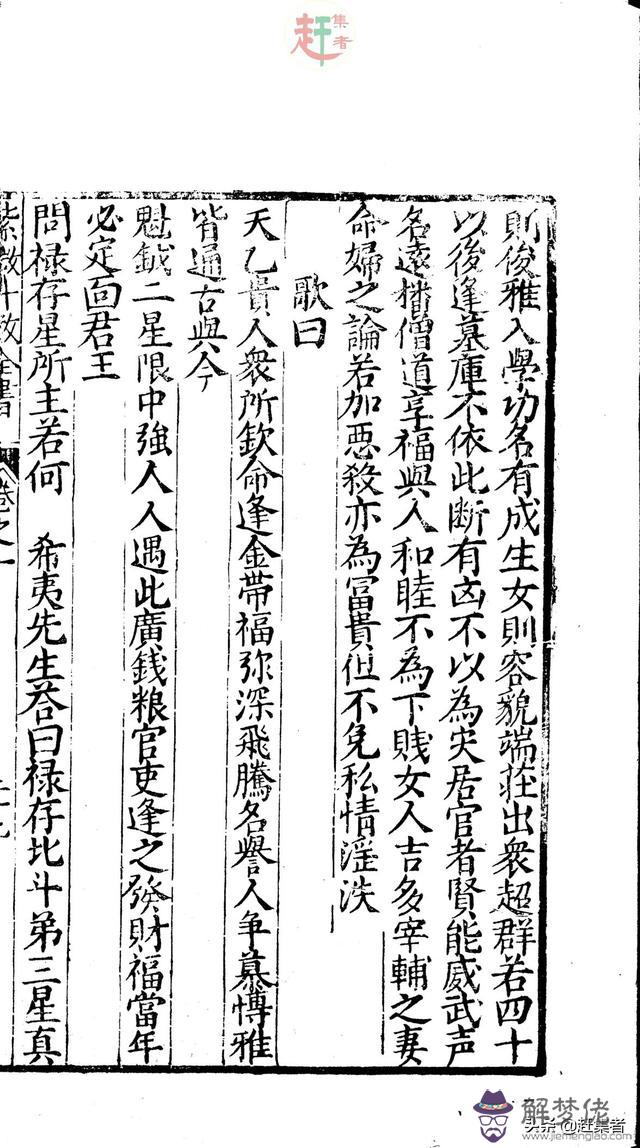 赶集者
則俊雅入學功名有成生女則容貌端莊出衆超群若四十
以後逢墓庫不依此斷有凶不以為灾居官者賢能威武声
名遠播僧道享福與人和睦不為下賎女人吉多宰輔之妻
命婦之論若加惡殺亦為冨貴但不免私情滛泆
歌曰
天乙貴人衆所欽命逢金帶福弥深飛騰名譽人争慕博雅
皆通古與今
魁鉞二星限中強人人遇此廣錢粮官吏逢之發財福當年
必定面君王
問禄存星所主若何 希夷先生荅曰禄存北斗第三星真
紫微斗数全書 卷之一
解梦佬
www.jiemenglao.com
头条@赶集者